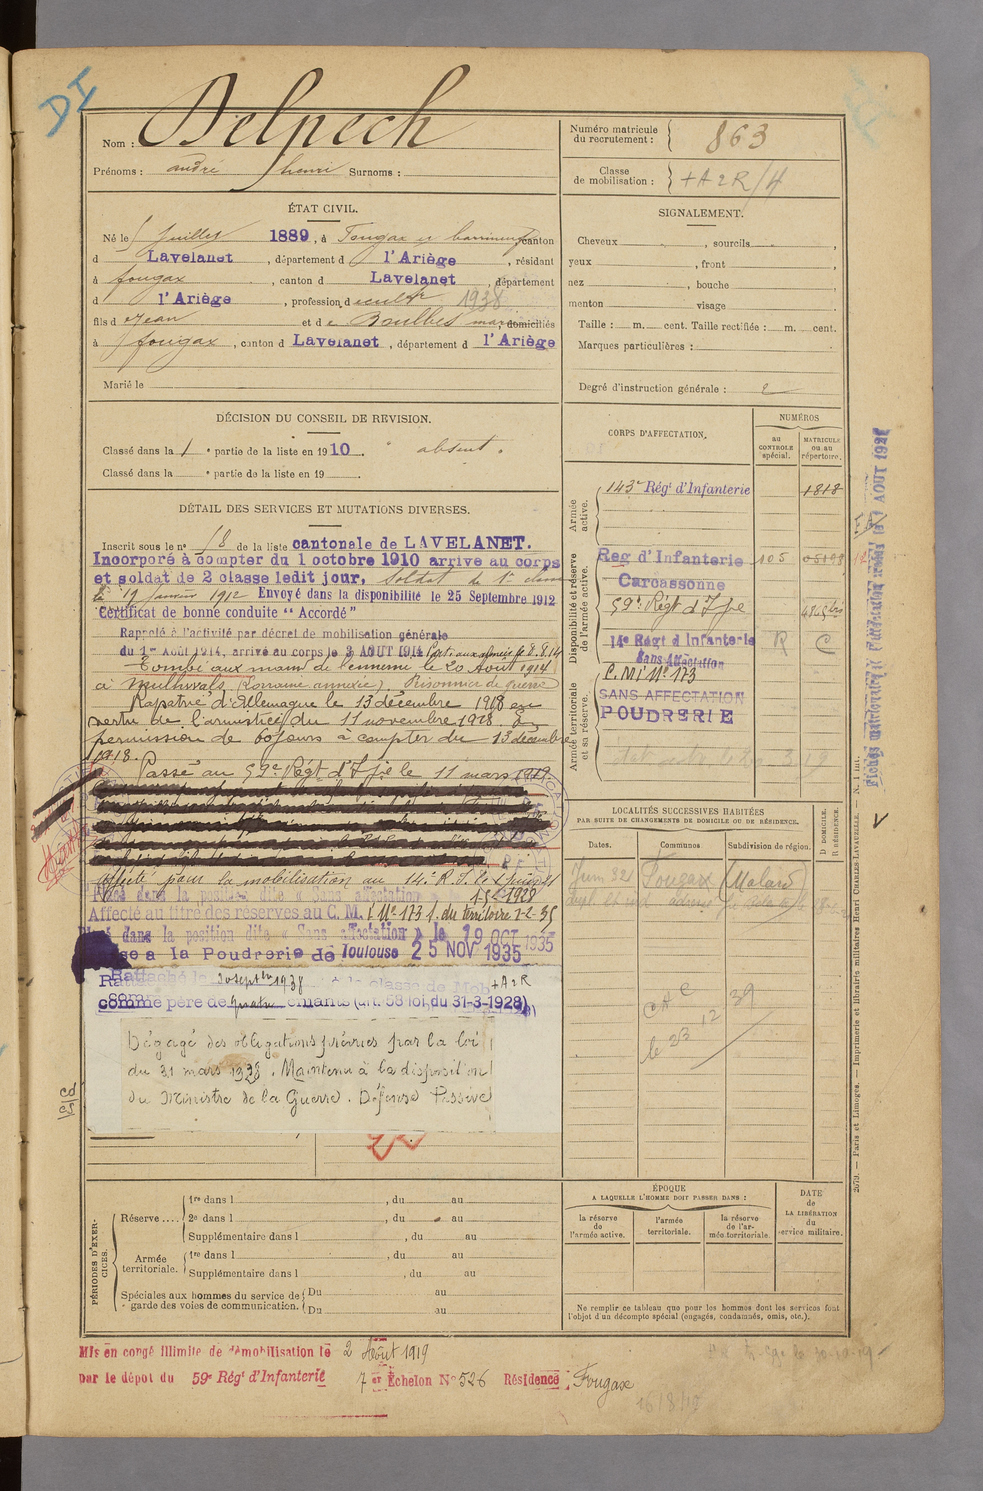 DI
Nom : Delpech
Prénoms : andré henri Surnoms :
Numéro matricule du recrutement : 863
Classe de mobilisation : +A2R/4
ÉTAT CIVIL.
Né le Juillet 1889, à Fougax et barrineuf, canton
d Lavelanet, département d l'Ariège, résidant
à fougax, canton d Lavelanet, département
d l'Ariège, profession d cult 1938
fils d Jean et de domiciliés
à fougax, canton d Lavelanet, département d l'Ariège
Marié le
SIGNALEMENT.
Cheveux , sourcils ,
yeux , front ,
nez , bouche ,
menton visage
Taille : m. cent. Taille rectifiée : m. cent.
Marques particulières :
Degré d'instruction générale : 2
DÉCISION DU CONSEIL DE REVISION.
Classé dans la 1 e partie de la liste en 1910. absent.
Classé dans la e partie de la liste en 19
DÉTAIL DES SERVICES ET MUTATIONS DIVERSES.
Inscrit sous le n° 18 de la liste cantonale de LAVELANET.
Incorporé à compter du 1 octobre 1910 arrive au corps
et soldat de 2 classe ledit jour, Soldat de 1e classe
le 19 Janvier 1912 Envoyé dans la disponibilité le 25 Septembre 1912
Certificat de bonne conduite "Accordé"
Rappelé à l'activité par décret de mobilisation générale
du 1er Août 1914, arrivé au corps le 3 AOUT 1914 Parti aux armées le 8.8.14
Tombé aux mains de l'ennemi le 20 Août 1914
à (Lorraine annexée). Prisonnier de guerre
Rapatrié d'Allemagne le 13 décembre 1918 en
vertu de l'armistice du 11 novembre 1918. En
permission de 60 jours à compter du 13 décembre
1918.
Passé au 59e Régt d'Ife le 11 mars 1919.
Affecté pour la mobilisation au 14e R.I. le 1 Juin 21
Placé dans la position dite « Sans affectation » 1-5-1928
Affecté au titre des réserves au C. M. I N° 173 f. du territoire 2-2-35
Placé dans la position dite « Sans affectation » le 19 OCT 1935
à la Poudrerie de Toulouse 25 NOV 1935
Rattaché le 20 septbre 1938 à la classe de Mob +A2R
comme père de quatre enfants (art. 58 loi du 31-3-1928)
Dégagé des obligations prévues par la loi
du 31 mars 1928. Maintenu à la disposition
du Ministre de la Guerre. Défense Passive
CORPS D'AFFECTATION.
NUMÉROS
au CONTROLE spécial.
MATRICULE ou au répertoire.
Armée active.
143e Régt d'Infanterie 1818
Disponibilité et réserve de l'armée active.
Reg d'Infanterie 105 05198
Carcassonne
59e Régt d'Ife 4845 bis
14e Régt d'Infanterie R C
Sans Affectation
Armée territoriale et sa réserve.
C.M.I N° 173
SANS AFFECTATION
POUDRERIE
LOCALITÉS SUCCESSIVES HABITÉES
PAR SUITE DE CHANGEMENTS DE DOMICILE OU DE RÉSIDENCE.
Dates. Communes Subdivision de région. D. DOMICILE. R. RÉSIDENCE.
Juin 32 Fougax (Malard)
CAC 12 39
le 23
ÉPOQUE
A LAQUELLE L'HOMME DOIT PASSER DANS :
la réserve de l'armée active.
l'armée territoriale.
la réserve de l'armée territoriale.
DATE de LA LIBÉRATION du service militaire.
Ne remplir ce tableau que pour les hommes dont les services font
l'objet d'un décompte spécial (engagés, condamnés, omis, etc.).
PÉRIODES D'EXERCICES.
Réserve .... 1re dans l , du au
2e dans l , du au
Supplémentaire dans l , du au
Armée territoriale. 1re dans l , du au
Supplémentaire dans l , du au
Spéciales aux hommes du service de garde des voies de communication. Du au
Du au
Mis en congé illimité de démobilisation le 2 Août 1919
par le dépôt du 59e Régt d'Infanterie 7 er Échelon N° 526 Résidence : Fougax
2079. — Paris et Limoges. — Imprimerie et librairie militaires Henri CHARLES-LAVAUZELLE. — N. 1 int.